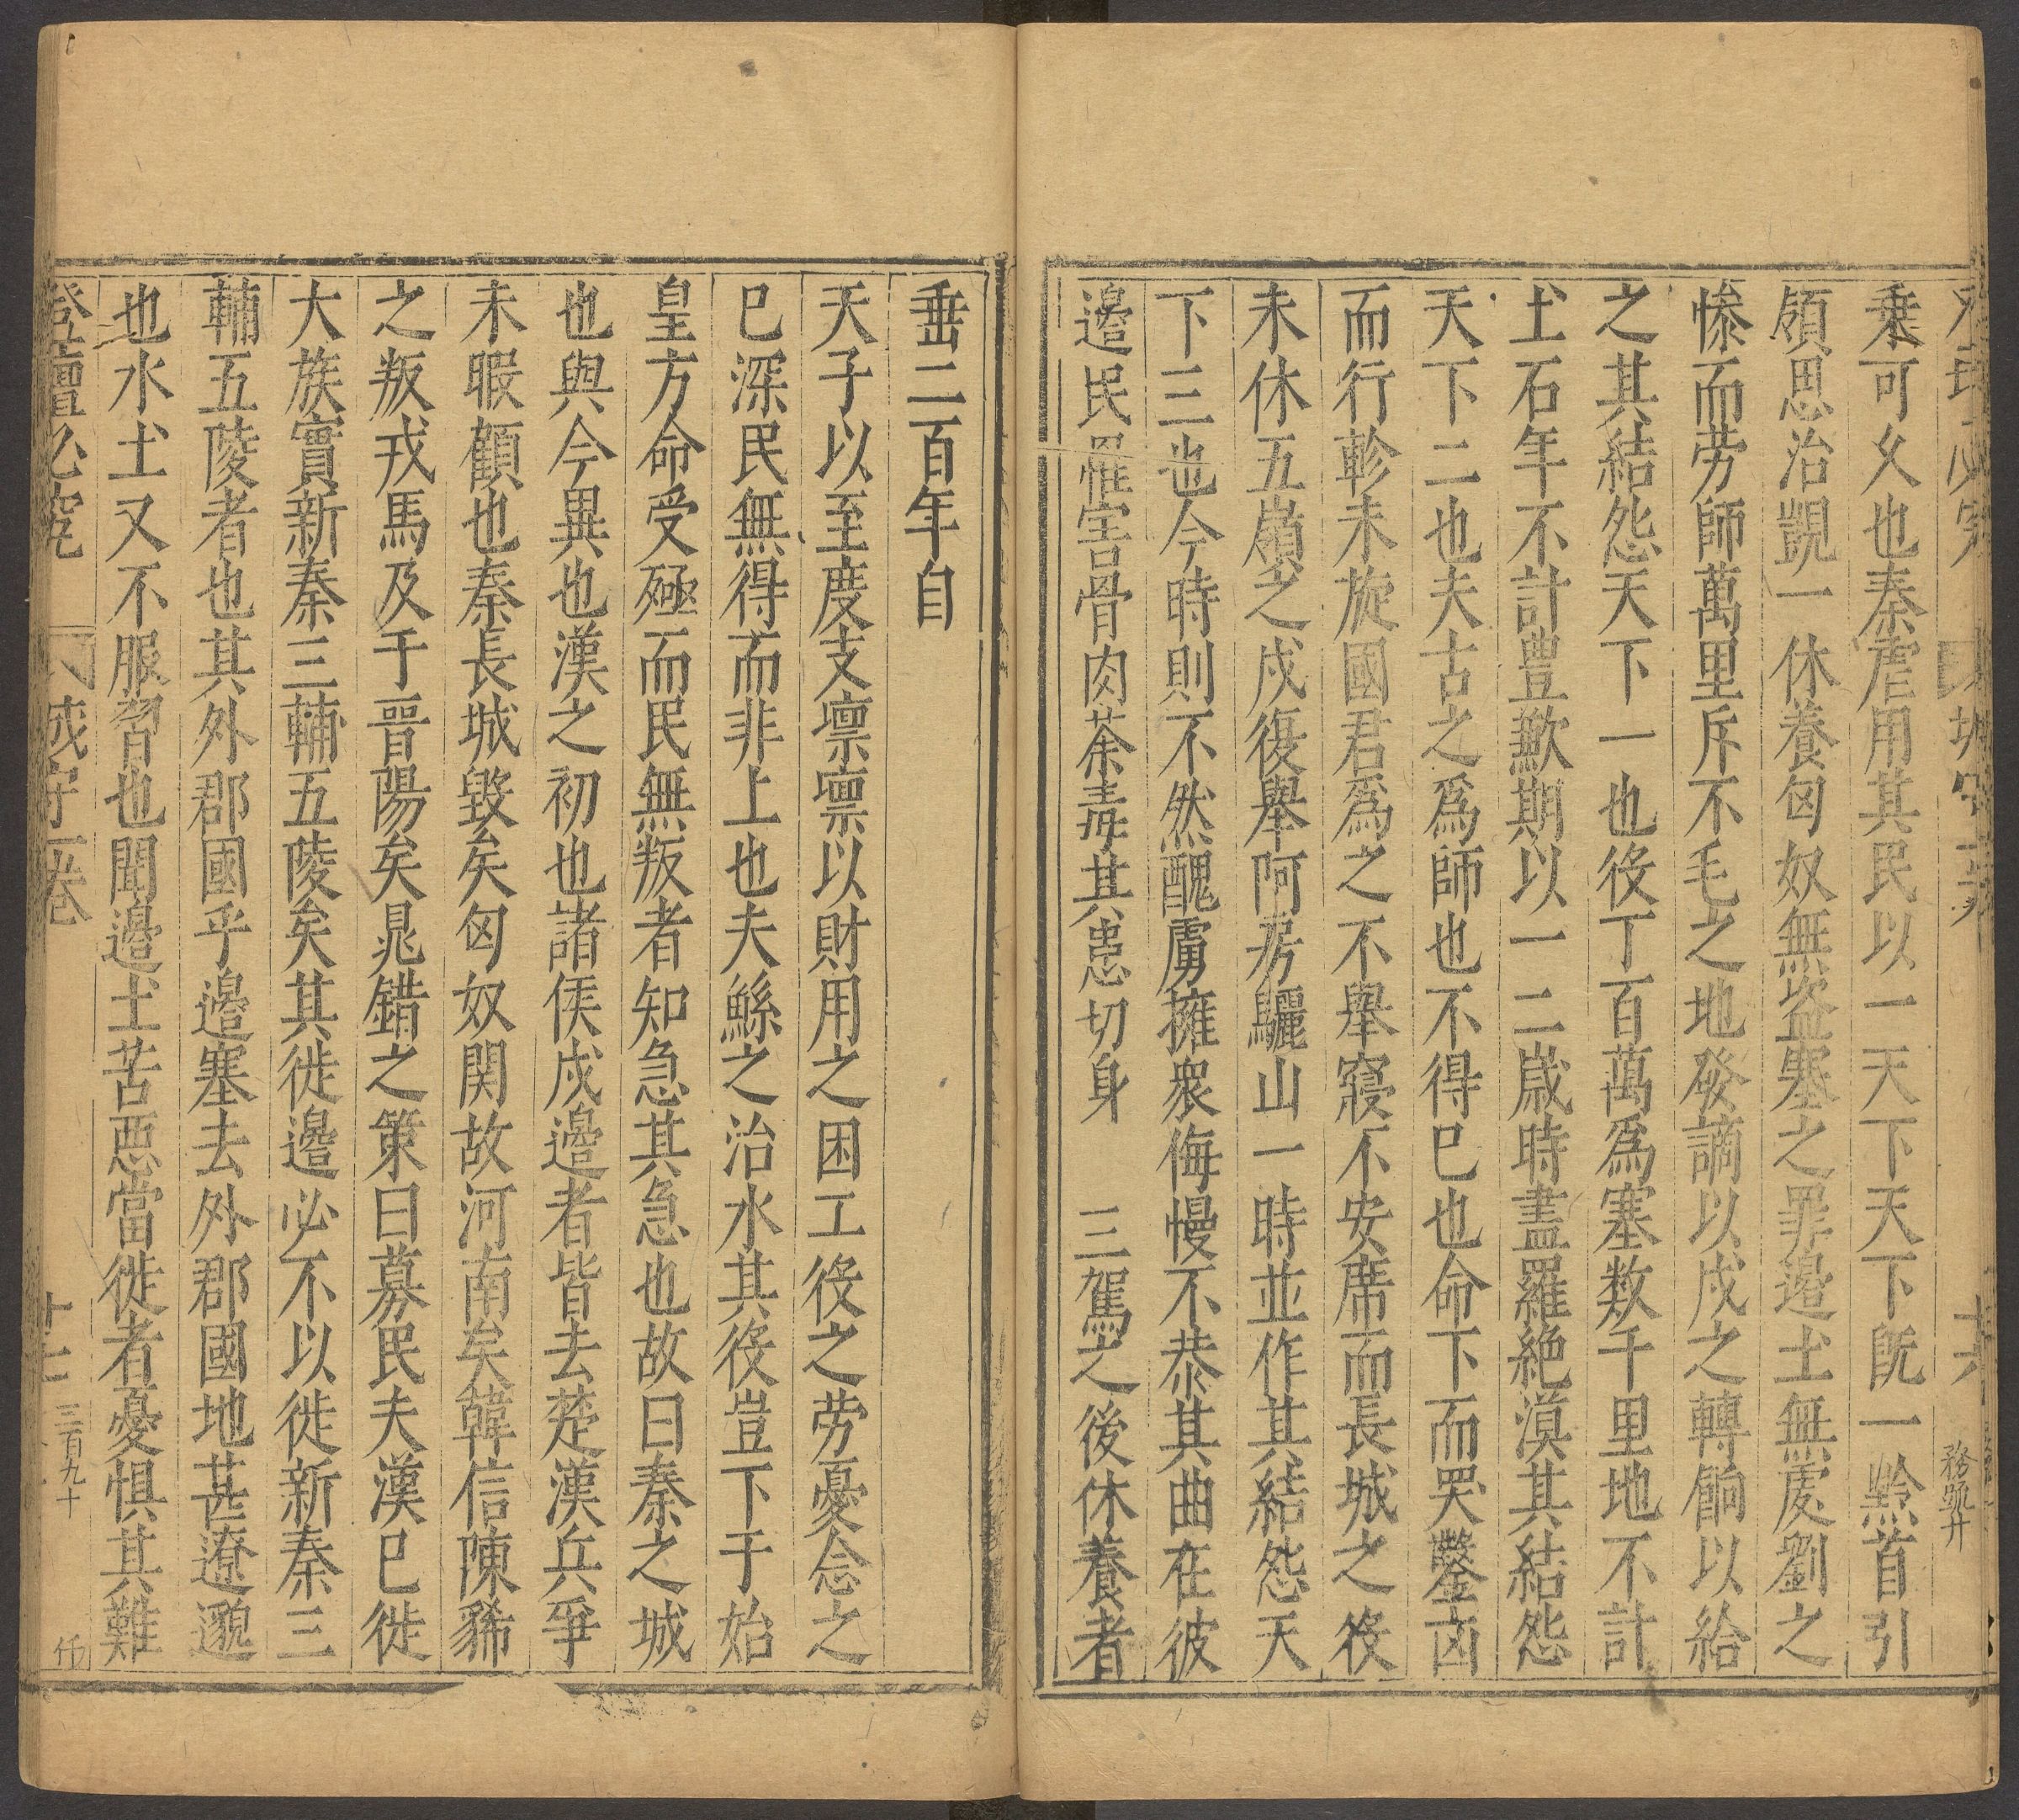 乗可久也秦虐用其民以一天下天下既一黔首引
領思治覬一休養匈奴無盗塞之罪邉土無處劉之
慘而劳師萬里斥不毛之地發謫以戍之轉餉以給
之其結怨天下一也役丁百萬爲塞数千里地不計
土石年不計豊歉期以一二歲時盡羅絶漠其結怨
天下二也夫古之爲師也不得已也命下而哭鑿凶
而行軫未旋國君爲之不舉寢不安席而長城之役
未休五嶺之戍復舉阿房驪山一時並作其結怨天
下三也今時則不然醜虜擁衆侮慢不恭其曲在彼
邉民罹害骨肉荼毒其患切身 三駕之後休養者
垂二百年自
天子以至度支禀禀以財用之困工役之劳憂念之
已深民無得而非上也夫鯀之治水其役豈下于始
皇方命受殛而民無叛者知急其急也故曰秦之城
也與今異也漢之初也諸侯戍邉者皆去楚漢兵爭
未暇顧也秦長城毀矣匈奴関故河南矣韓信陳豨
之叛戎馬及于晉陽矣晁錯之策曰募民夫漢已徙
大族實新秦三輔五陵矣其徙邉必不以徙新秦三
輔五陵者也其外郡國乎邉塞去外郡國地甚遼邈
也水土又不服習也聞邉土苦惡當徙者憂惧其難
登壇必究 城守一卷 十七 三百九十 任